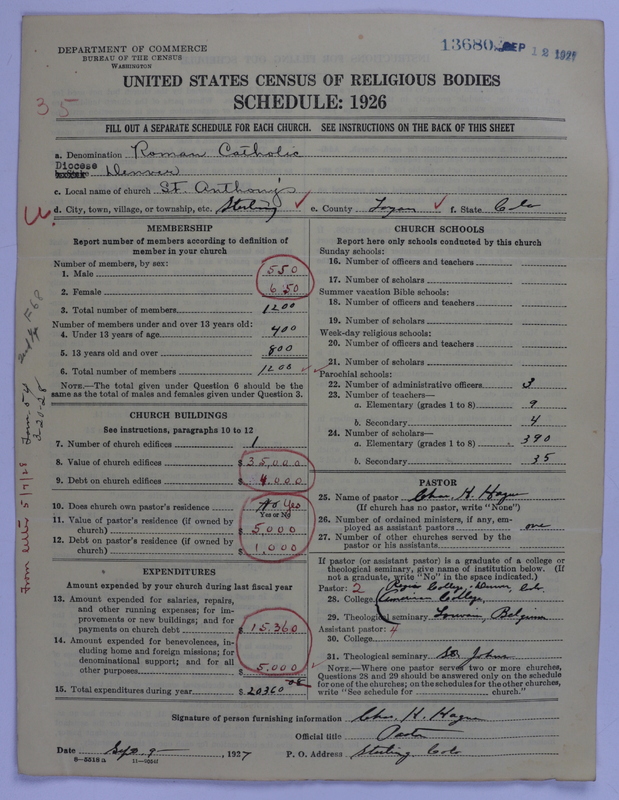 DEPARTMENT OF COMMERCE
BUREAU OF THE CENSUS
WASHINGTON
13680 SEP 12 1927
UNITED STATES CENSUS OF RELIGIOUS BODIES
SCHEDULE: 1926
35
FILL OUT A SEPARATE SCHEDULE FOR EACH CHURCH. SEE INSTRUCTIONS ON THE BACK OF THIS SHEET
a. Denomination Roman Catholic
Diocese Denver
c. Local name of church St. Anthony's
d. City, town, village, or township, etc. Sterling e. County Logan f. State Colo
MEMBERSHIP
Report number of members according to definition of member in your church
Number of members, by sex:
1. Male 550
2. Female 650
3. Total number of members 1200
Number of members under and over 13 years old:
4. Under 13 years of age 400
5. 13 years old and over 800
6. Total number of members 1200
NOTE.—The total given under Question 6 should be the same as the total of males and females given under Question 3.
CHURCH BUILDINGS
See instructions, paragraphs 10 to 12
7. Number of church edifices 1
8. Value of church edifices $35,000
9. Debt on church edifices $4,000
10. Does church own pastor's residence No Yes
Yes or No
11. Value of pastor's residence (if owned by church) $5,000
12. Debt on pastor's residence (if owned by church) $1,000
EXPENDITURES
Amount expended by your church during last fiscal year
13. Amount expended for salaries, repairs, and other running expenses; for improvements or new buildings; and for payments on church debt $15,360
14. Amount expended for benevolences, including home and foreign missions; for denominational support; and for all other purposes $5,000
15. Total expenditures during year $20360
CHURCH SCHOOLS
Report here only schools conducted by this church
Sunday schools:
16. Number of officers and teachers
17. Number of scholars
Summer vacation Bible schools:
18. Number of officers and teachers
19. Number of scholars
Week-day religious schools:
20. Number of officers and teachers
21. Number of scholars
Parochial schools:
22. Number of administrative officers 3
23. Number of teachers—
a. Elementary (grades 1 to 8) 9
b. Secondary 4
24. Number of scholars—
a. Elementary (grades 1 to 8) 390
b. Secondary 35
PASTOR
25. Name of pastor Chas. H. Hagus
(If church has no pastor, write "None")
26. Number of ordained ministers, if any, employed as assistant pastors one
27. Number of other churches served by the pastor or his assistants
If pastor (or assistant pastor) is a graduate of a college or theological seminary, give name of institution below. (If not a graduate, write "No" in the space indicated.)
Pastor: 2 College, Denver, Col.
28. College American College,
29. Theological seminary Louvain, Belgium
Assistant pastor: 4
30. College
31. Theological seminary St. Johns
NOTE.—Where one pastor serves two or more churches, Questions 28 and 29 should be answered only on the schedule for one of the churches; on the schedules for the other churches, write "See schedule for church."
Signature of person furnishing information Chas. H. Hagus
Official title Pastor
Date Sep. 9 , 1927 P. O. Address Sterling Colo
8—5318 a
From letter 5/7/28
2-28-28